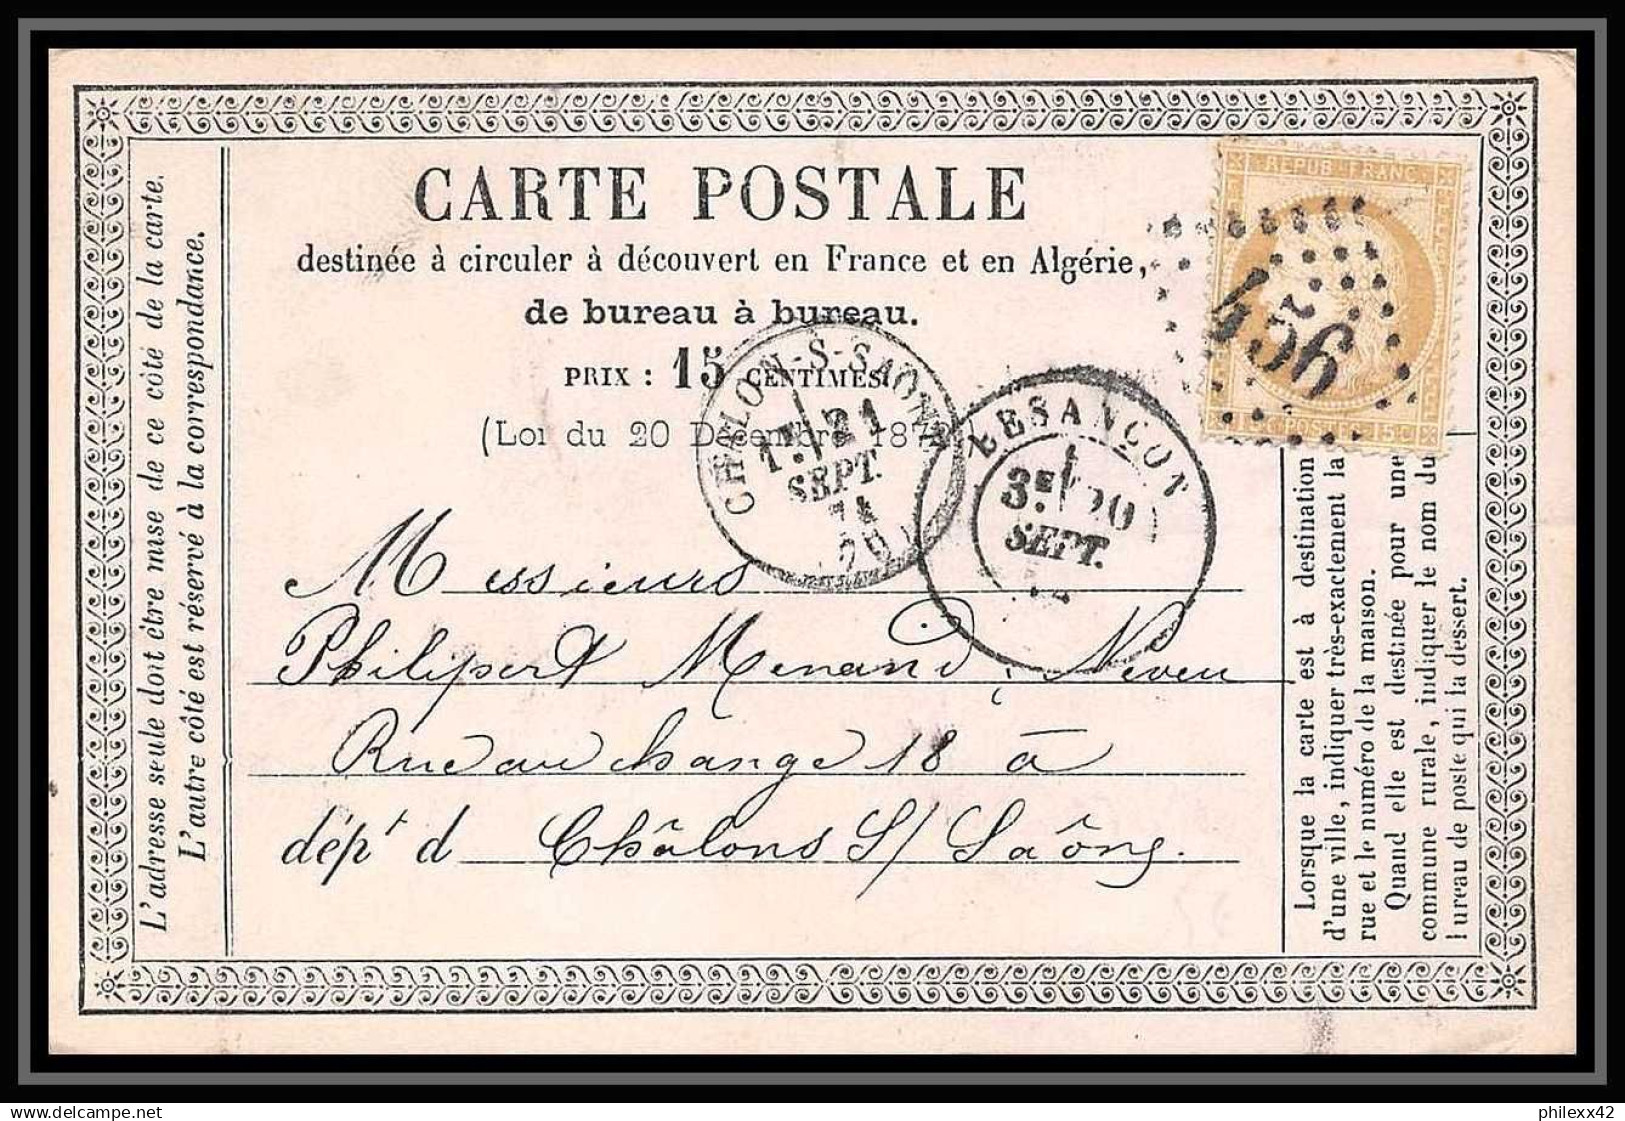 CARTE POSTALE
destinée à circuler à découvert en France et en Algérie,
de bureau à bureau.
PRIX : 15 CENTIMES.
(Loi du 20 Décembre 1872)
REPUB · FRANC
15 C POSTES 15 C
456
CHALON-S-SAONE
1E 21
SEPT.
74
(70)
BESANÇON
3E 20
SEPT.
Messieurs
Philipert Menand, Neveu
Rue au change 18 à
dépt d Châlons S/ Saône.
L'adresse seule doit être mise de ce côté de la carte.
L'autre côté est réservé à la correspondance.
Lorsque la carte est à destination
d'une ville, indiquer très-exactement la
rue et le numéro de la maison.
Quand elle est destinée pour une
commune rurale, indiquer le nom du
bureau de poste qui la dessert.
delcampe.net
philexx42